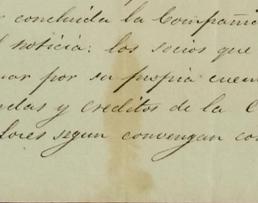 concluida la Compañi
noticia: los socios que
por su propia cuen
das y creditos de la C
lores segun convengan co